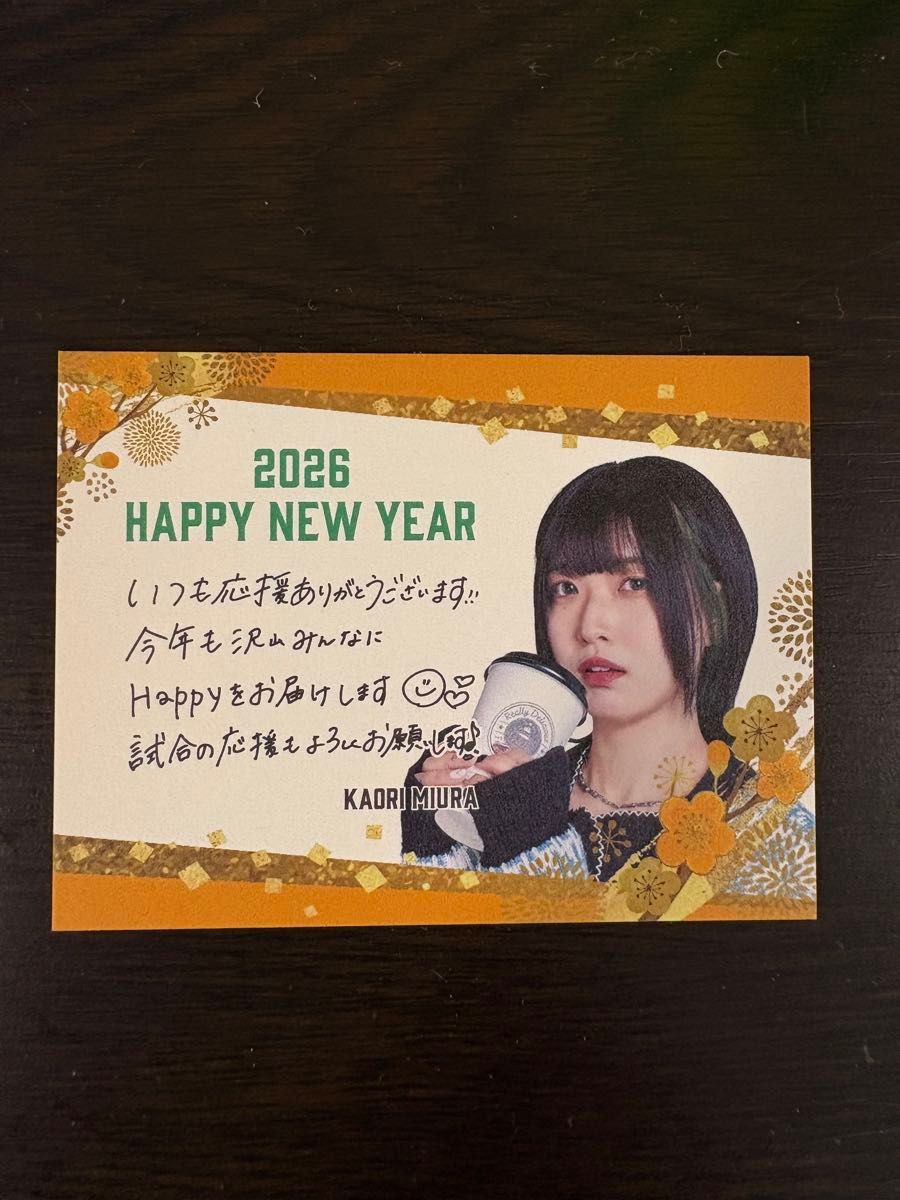 2026
HAPPY NEW YEAR
いつも応援ありがとうございます!!
今年も沢山みんなに
Happyをお届けします
試合の応援もよろしくお願いします♪
KAORI MIURA
Really Delicious